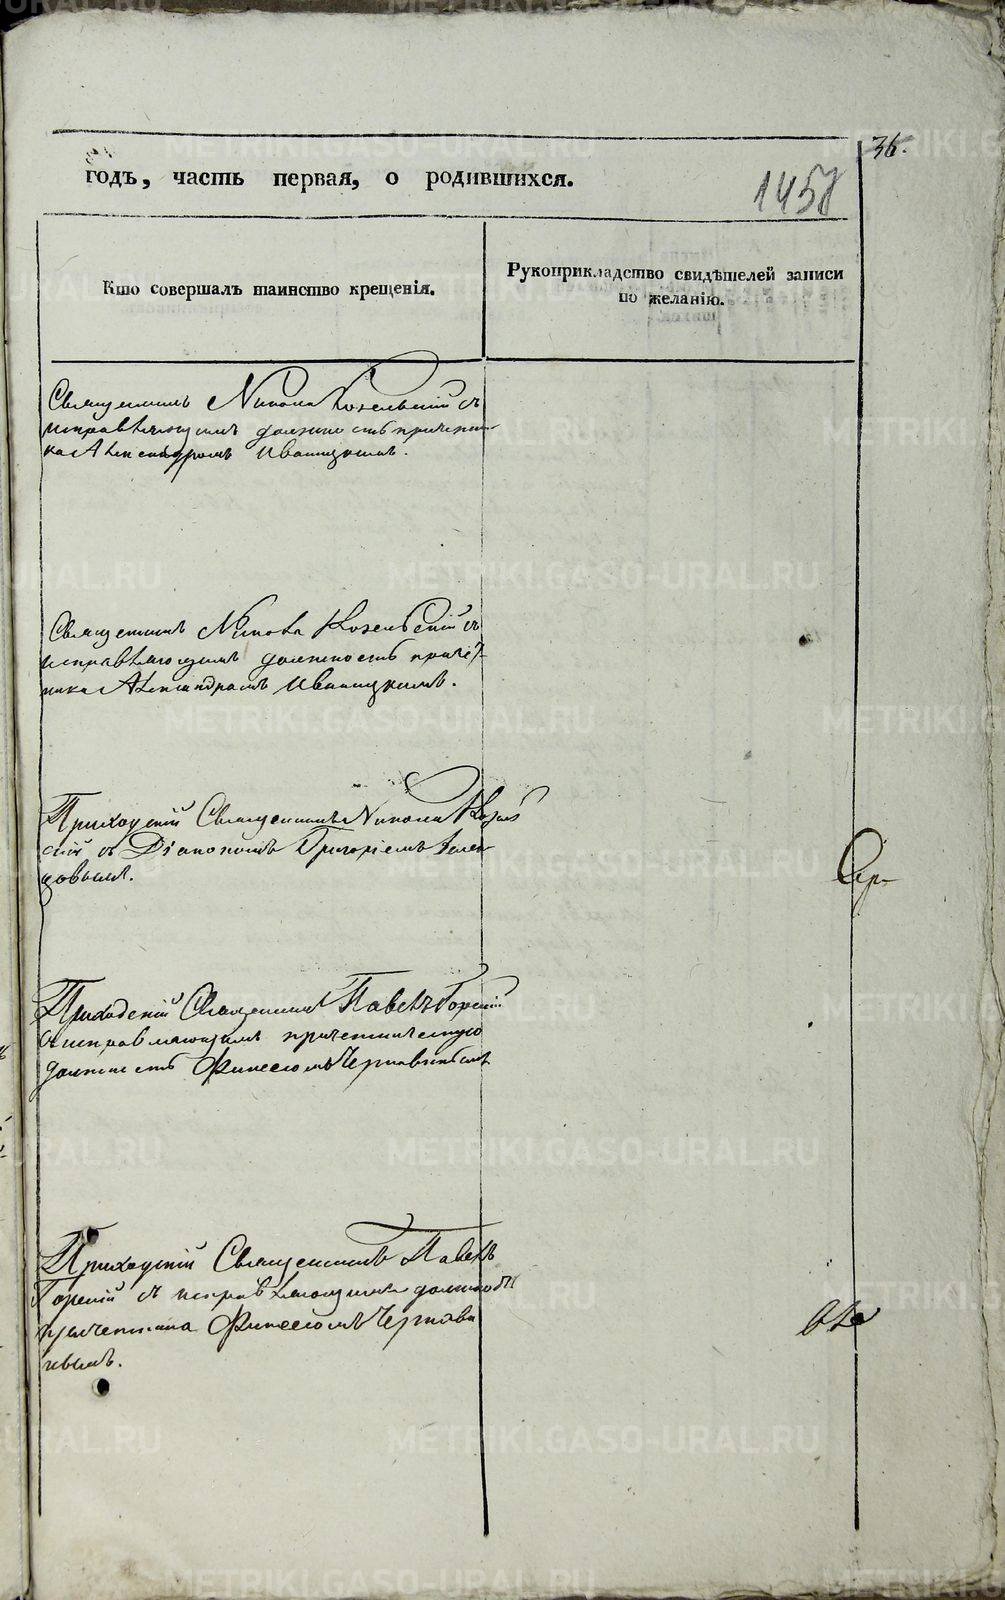 36.
годъ, часть первая, о родившихся.
1458
Кто совершалъ таинство крещенія.
Рукоприкладство свидѣтелей записи
по желанію.
Священникъ Никола Козельскій съ
исправляющимъ должность причетни-
ка Александромъ Иваницкимъ.
Священникъ Никола Козельскій съ
исправляющимъ должность причет-
ника Александромъ Иваницкимъ.
Приходскій Священникъ Никола Козель
скій съ Діакономъ Григоріемъ
Приходскій Священникъ Павелъ Горскій
съ исправляющимъ причетническую
должность Финеесомъ
Приходскій Священникъ Павелъ
Горскій съ исправляющимъ должность
причетника Финеесомъ
METRIKI.GASO-URAL.RU